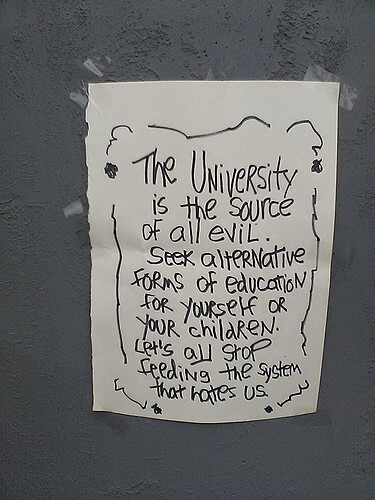 The University
is the source
of all evil.
Seek alternative
forms of education
for yourself or
your children.
Let's all stop
feeding the system
that hates us.